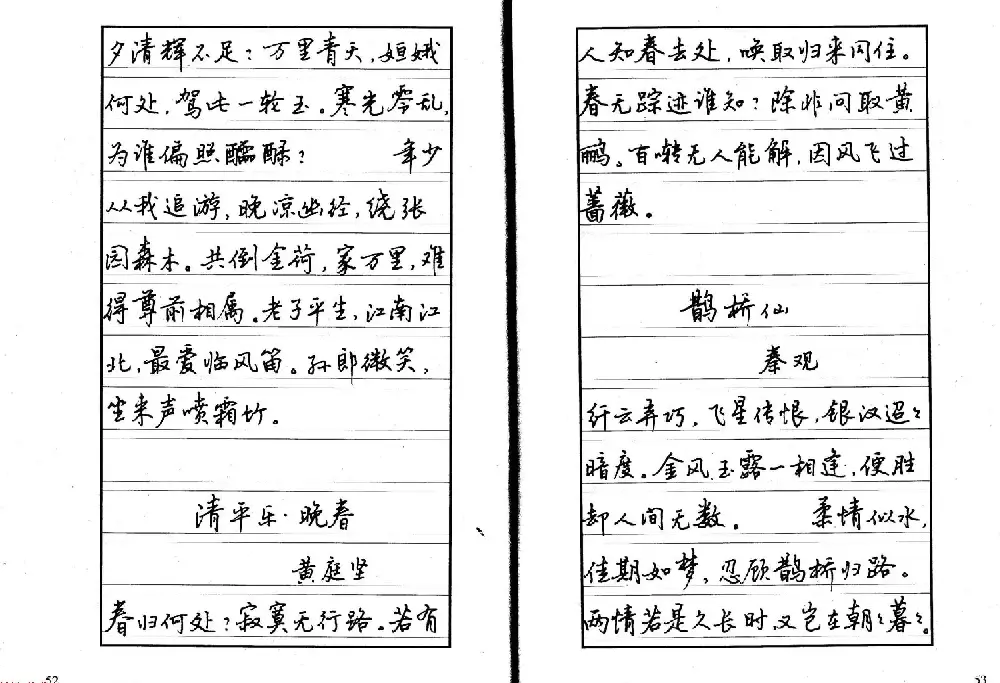 夕清辉不足：万里青天，姮娥
何处，驾此一轮玉。寒光零乱，
为谁偏照醽醁？　　年少
从我追游，晚凉幽径，绕张
园森木。共倒金荷，家万里，难
得尊前相属。老子平生，江南江
北，最爱临风笛。孙郎微笑，
坐来声喷霜竹。
清平乐·晚春
黄庭坚
春归何处？寂寞无行路。若有
52
人知春去处，唤取归来同住。
春无踪迹谁知？除非问取黄
鹂。百啭无人能解，因风飞过
蔷薇。
鹊桥仙
秦观
纤云弄巧，飞星传恨，银汉迢々
暗度。金风玉露一相逢，便胜
却人间无数。　　柔情似水，
佳期如梦，忍顾鹊桥归路。
两情若是久长时，又岂在朝々暮々。
53